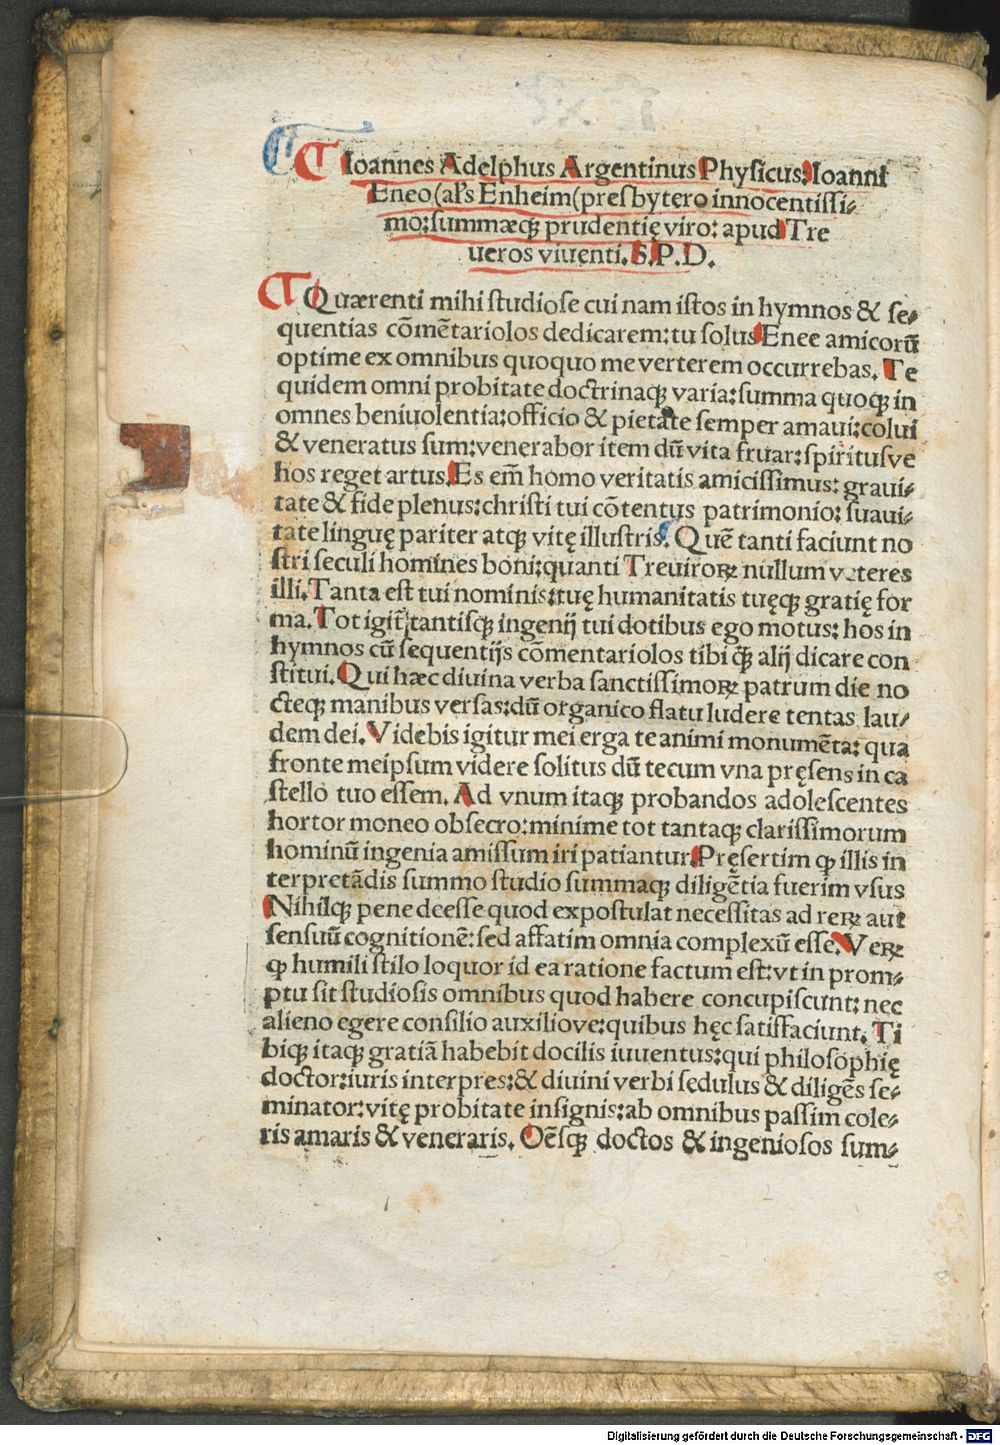 Ioannes Adelphus Argentinus Physicus: Ioanni
Eneo (al's Enheim (presbytero innocentissi⸗
mo: summæq; prudentię viro: apud Tre
ueros viuenti. S. P. D.
Quærenti mihi studiose cui nam istos in hymnos & se⸗
quentias cōmētariolos dedicarem: tu solus Enee amicorū
optime ex omnibus quoquo me verterem occurrebas. Te
quidem omni probitate doctrinaq; varia: summa quoq; in
omnes beniuolentia: officio & pietate semper amaui: colui
& veneratus sum: venerabor item dū vita fruar: spiritusve
hos reget artus. Es em̄ homo veritatis amicissimus: graui⸗
tate & fide plenus: christi tui cōtentus patrimonio: suaui⸗
tate linguę pariter atq; vitę illustris. Quē tanti faciunt no
stri seculi homines boni: quanti Treuiroꝝ nullum veteres
illi. Tanta est tui nominis: tuę humanitatis tuęq; gratię for
ma. Tot igit᷑ tantisq; ingenij tui dotibus ego motus: hos in
hymnos cū sequentijs cōmentariolos tibi q̄ꝫ alij dicare con
stitui. Qui hæc diuina verba sanctissimoꝝ patrum die no
cteq; manibus versas: dū organico flatu ludere tentas lau⸗
dem dei. Videbis igitur mei erga te animi monumēta: qua
fronte meipsum videre solitus dū tecum vna pręsens in ca
stello tuo essem. Ad vnum itaq; probandos adolescentes
hortor moneo obsecro: minime tot tantaq; clarissimorum
hominū ingenia amissum iri patiantur. Pręsertim ꝙ illis in
terpretādis summo studio summaq; diligētia fuerim vsus
Nihilq; pene deesse quod expostulat necessitas ad reꝝ aut
sensuū cognitionē: sed affatim omnia complexū esse. Veꝝ
ꝙ humili stilo loquor id ea ratione factum est: vt in prom⸗
ptu sit studiosis omnibus quod habere concupiscunt: nec
alieno egere consilio auxiliove: quibus hęc satisfaciunt. Ti
biq; itaq; gratiā habebit docilis iuuentus: qui philosophię
doctor: iuris interpres: & diuini verbi sedulus & diligēs se⸗
minator: vitę probitate insignis: ab omnibus passim cole⸗
ris amaris & veneraris. Oēsq; doctos & ingeniosos sum⸗
Digitalisierung gefördert durch die Deutsche Forschungsgemeinschaft - DFG